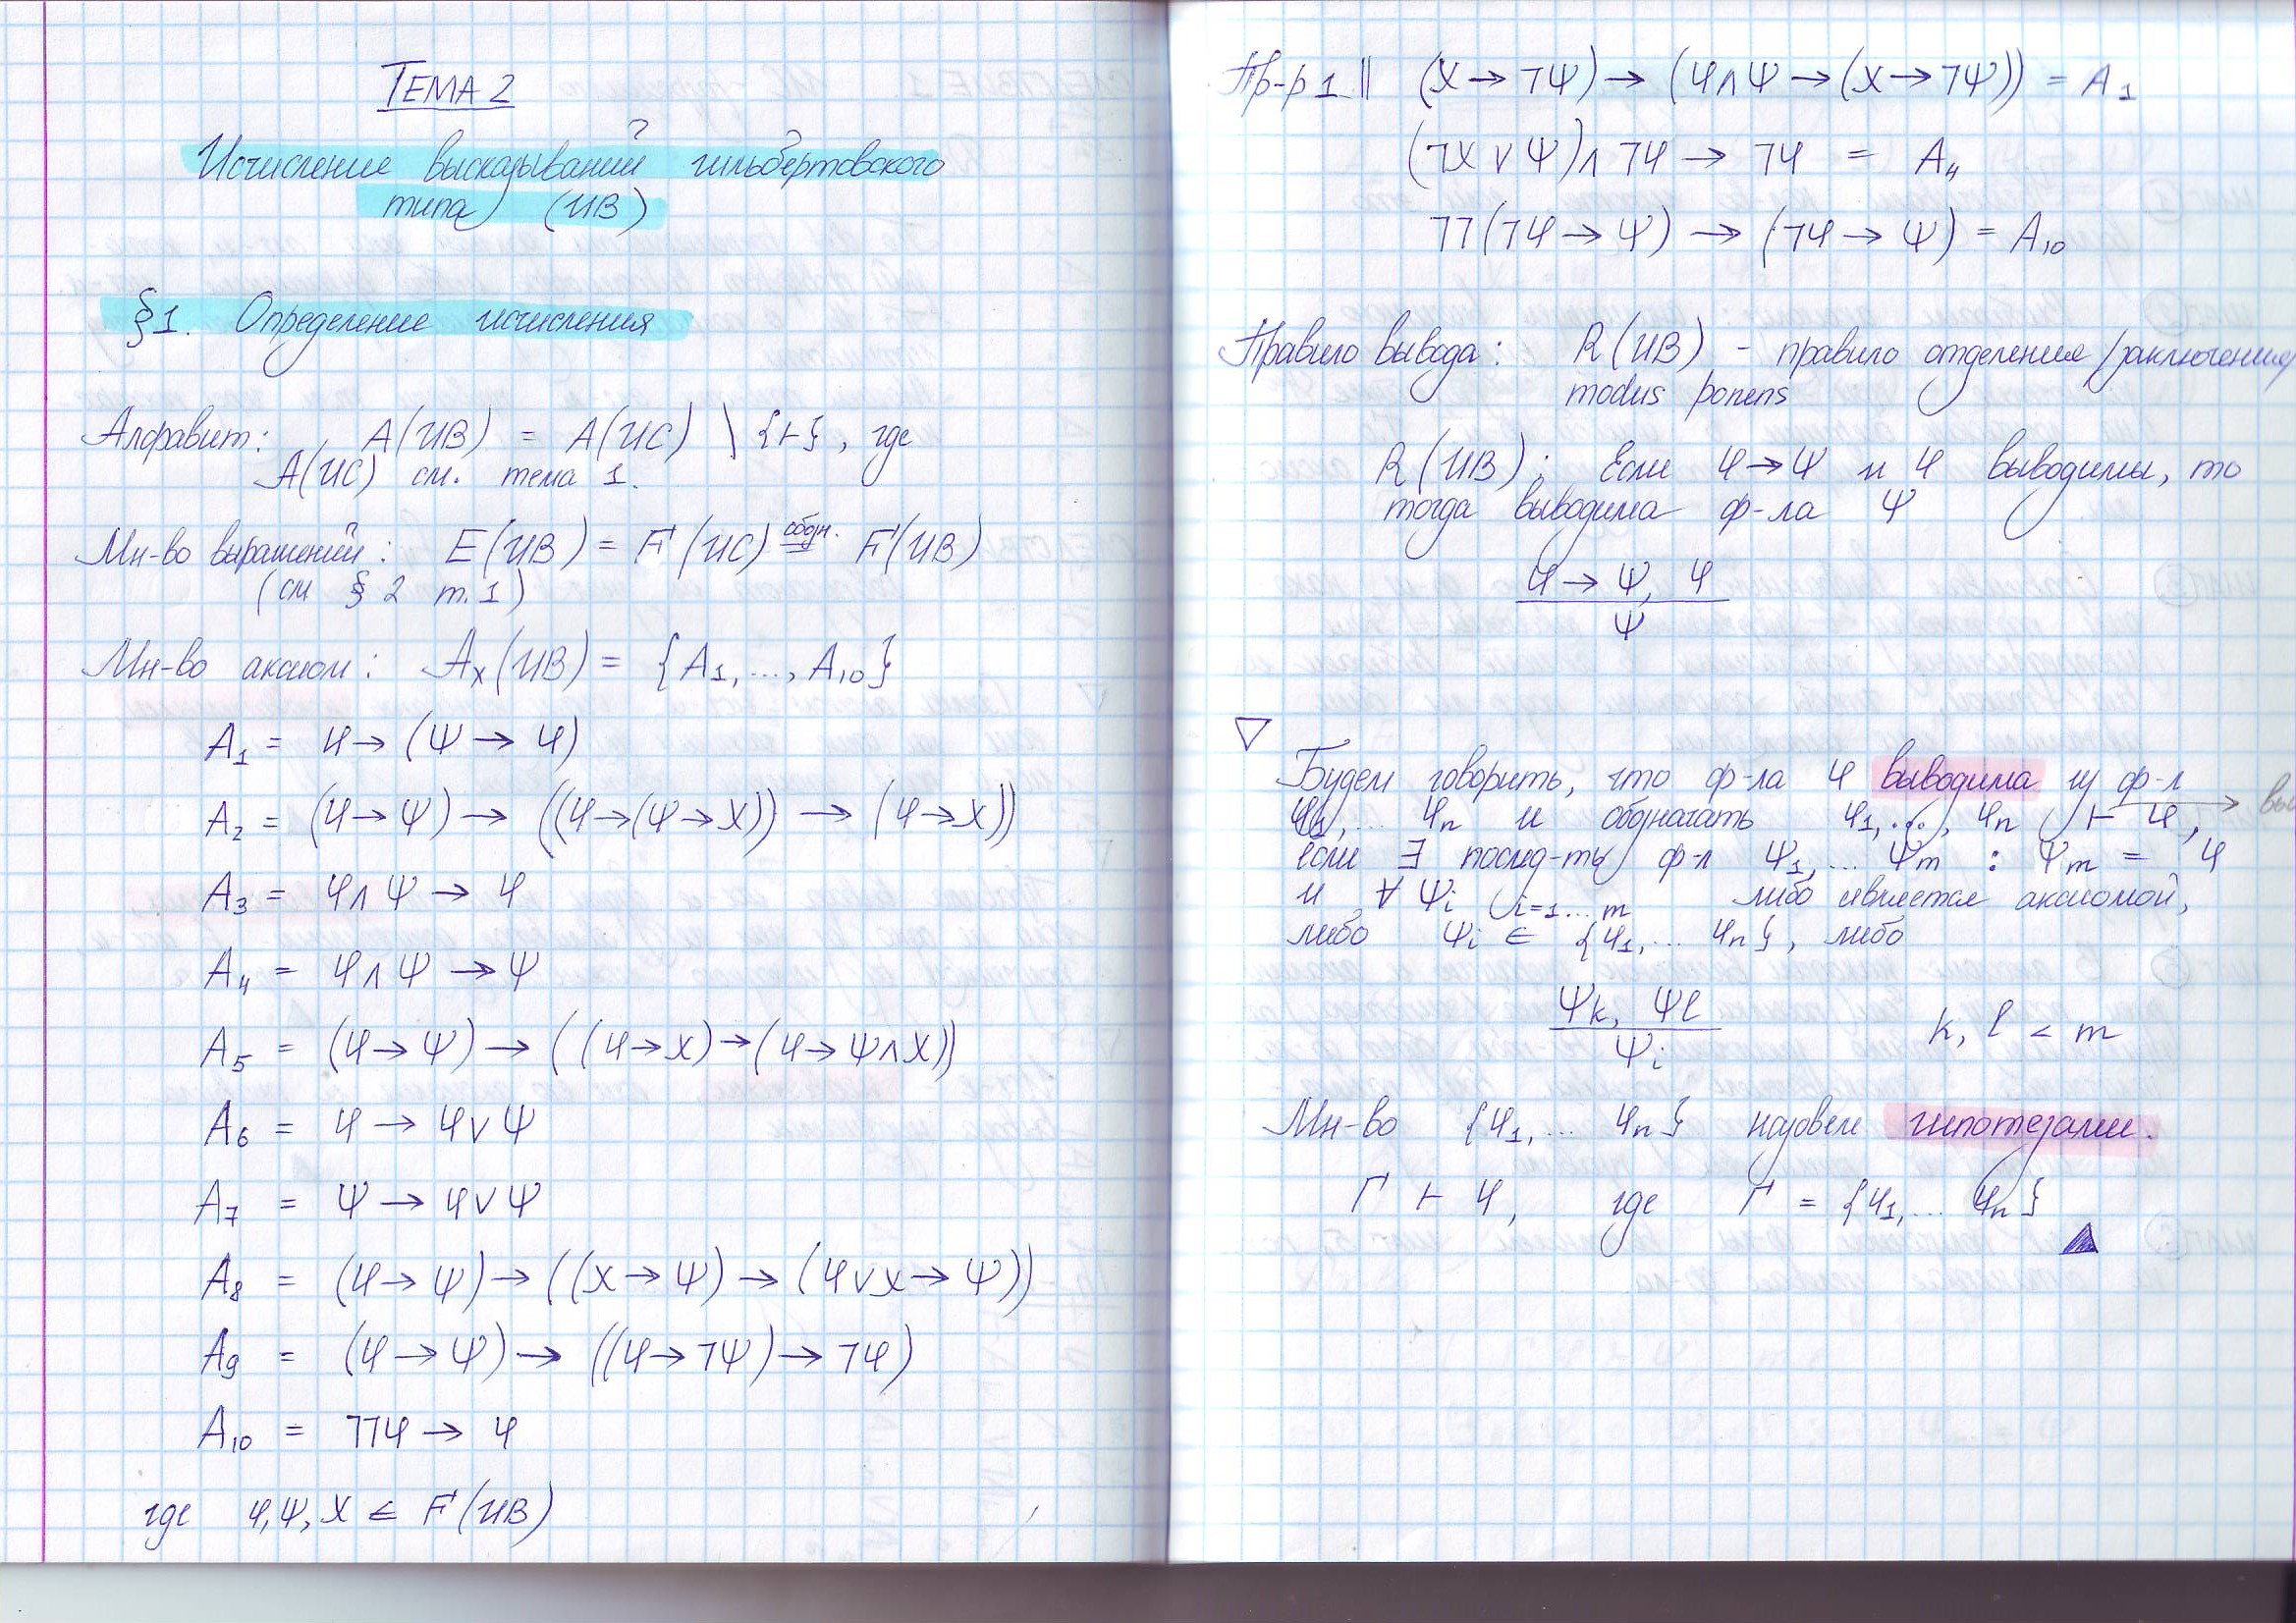 ТЕМА 2
Исчисление высказываний гильбертовского
типа (ИВ)
§1. Определение исчисления
Алфавит: A(ИВ) = A(ИС) \ {⊢}, где
A(ИС) см. тема 1.
Мн-во выражений: E(ИВ) = F(ИС) обозн.= F(ИВ)
(см § 2 т.1)
Мн-во аксиом: Ax(ИВ) = {A₁, ..., A₁₀}
A₁ = φ → (ψ → φ)
A₂ = (φ → ψ) → ((φ → (ψ → χ)) → (φ → χ))
A₃ = φ ∧ ψ → φ
A₄ = φ ∧ ψ → ψ
A₅ = (φ → ψ) → ((φ → χ) → (φ → ψ ∧ χ))
A₆ = φ → φ ∨ ψ
A₇ = ψ → φ ∨ ψ
A₈ = (φ → ψ) → ((χ → ψ) → (φ ∨ χ → ψ))
A₉ = (φ → ψ) → ((φ → ¬ψ) → ¬φ)
A₁₀ = ¬¬φ → φ
где φ, ψ, χ ∈ F(ИВ)
Пр-р 1 || (χ → ¬ψ) → (φ ∧ ψ → (χ → ¬ψ)) = A₁
(¬χ ∨ ψ) ∧ ¬φ → ¬φ = A₄
¬¬(¬φ → ψ) → (¬φ → ψ) = A₁₀
Правило вывода: R(ИВ) - правило отделения/заключения/
modus ponens
R(ИВ): Если φ → ψ и φ выводимы, то
тогда выводима ф-ла ψ
φ → ψ, φ
ψ
▽
Будем говорить, что ф-ла φ выводима из ф-л
φ₁, ... φₙ и обозначать φ₁, ..., φₙ ⊢ φ,
если ∃ послед-ть ф-л ψ₁, ... ψₘ : ψₘ = φ
и ∀ ψᵢ i=1...m либо является аксиомой,
либо ψᵢ ∈ {φ₁, ... φₙ}, либо
ψₖ, ψₗ
ψᵢ k, l < m
Мн-во {φ₁, ... φₙ} назовем гипотезами.
Γ ⊢ φ, где Γ = {φ₁, ... φₙ}
▲